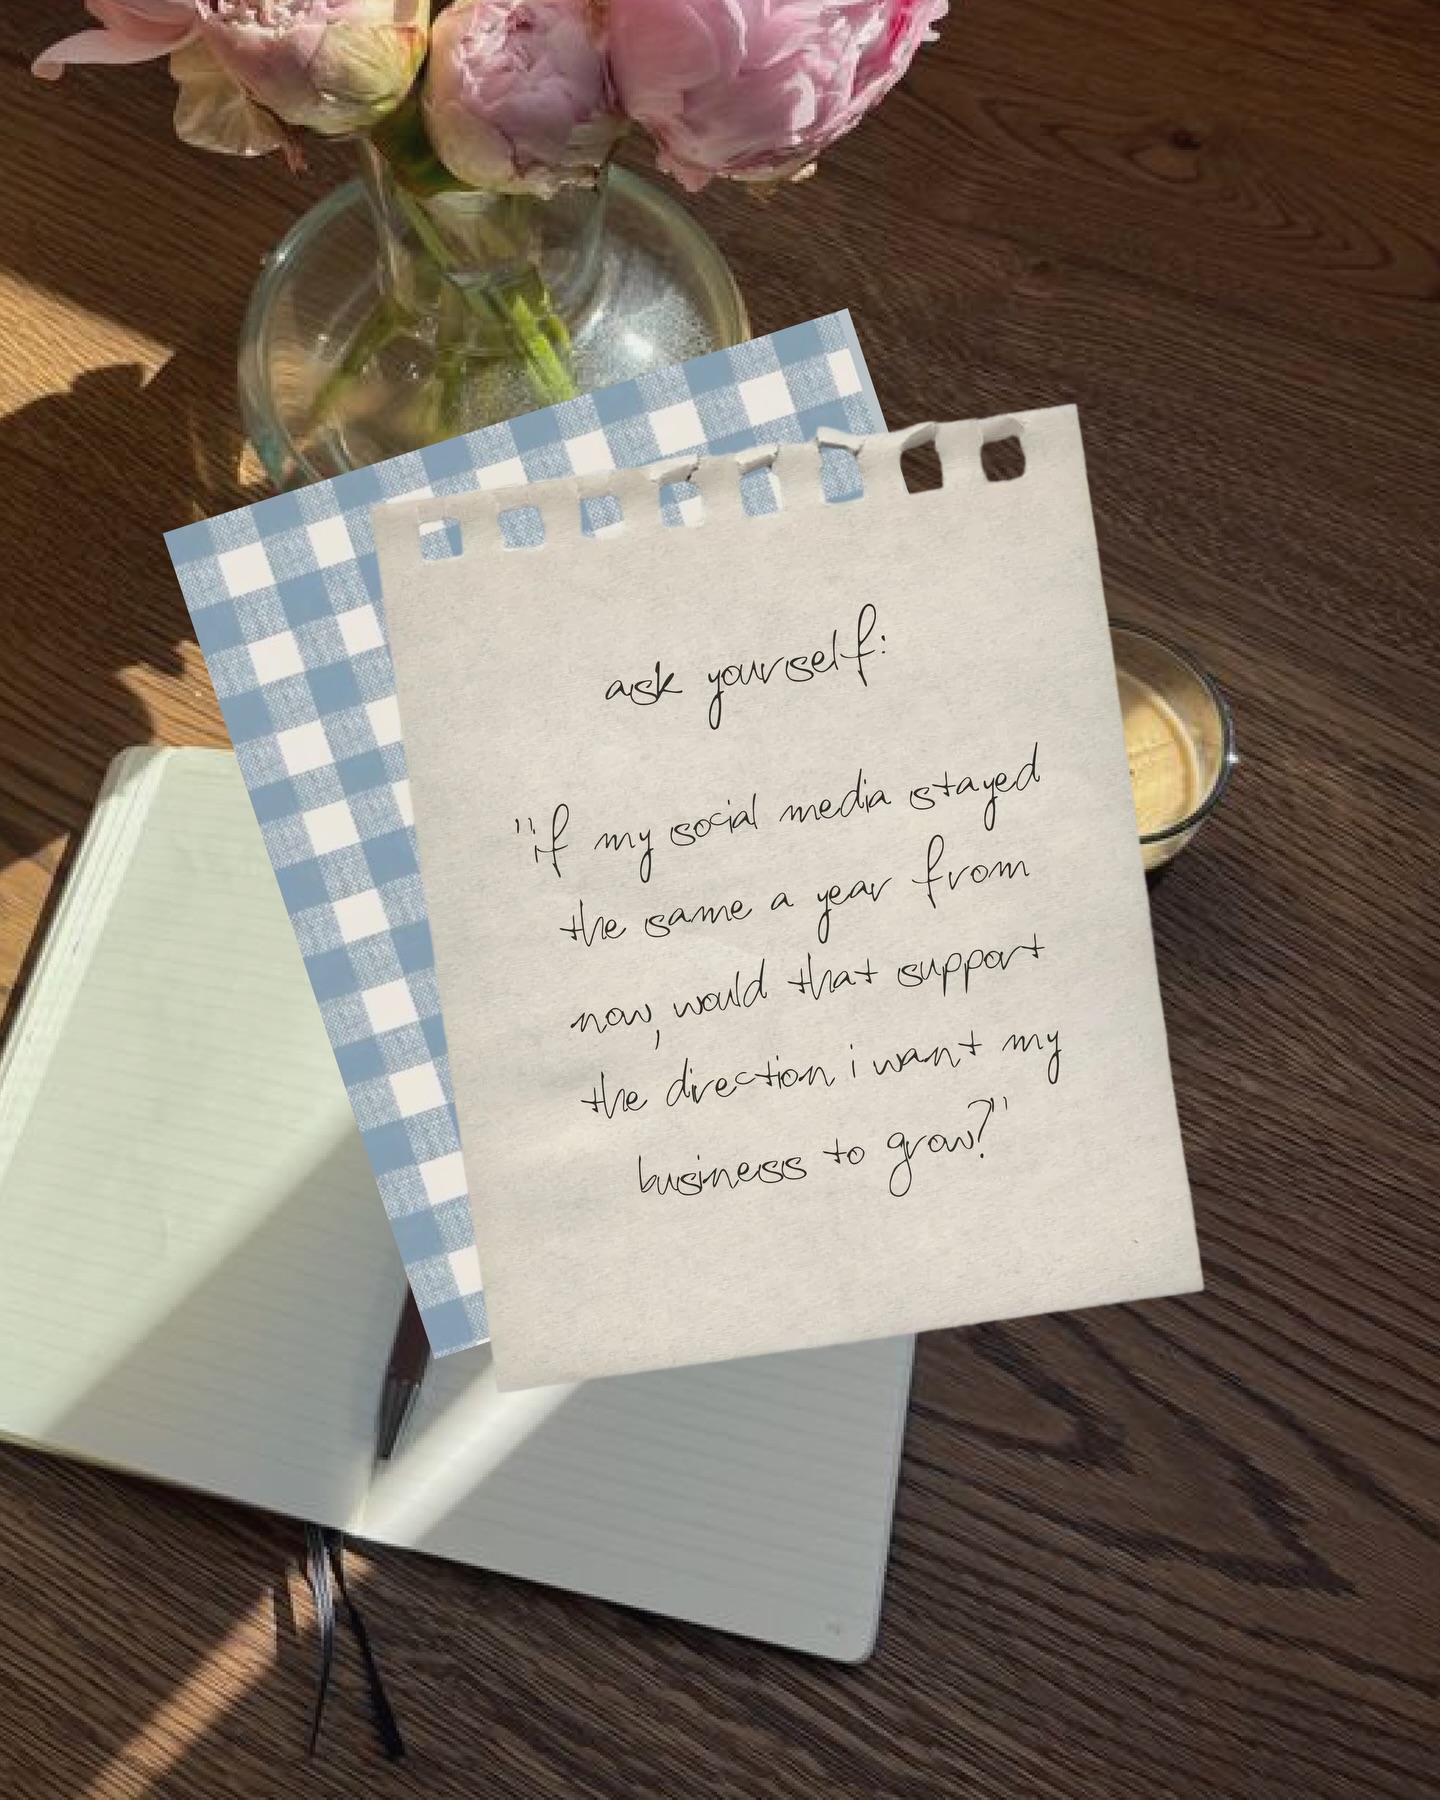 ask yourself:
"if my social media stayed
the same a year from
now, would that support
the direction i want my
business to grow?"